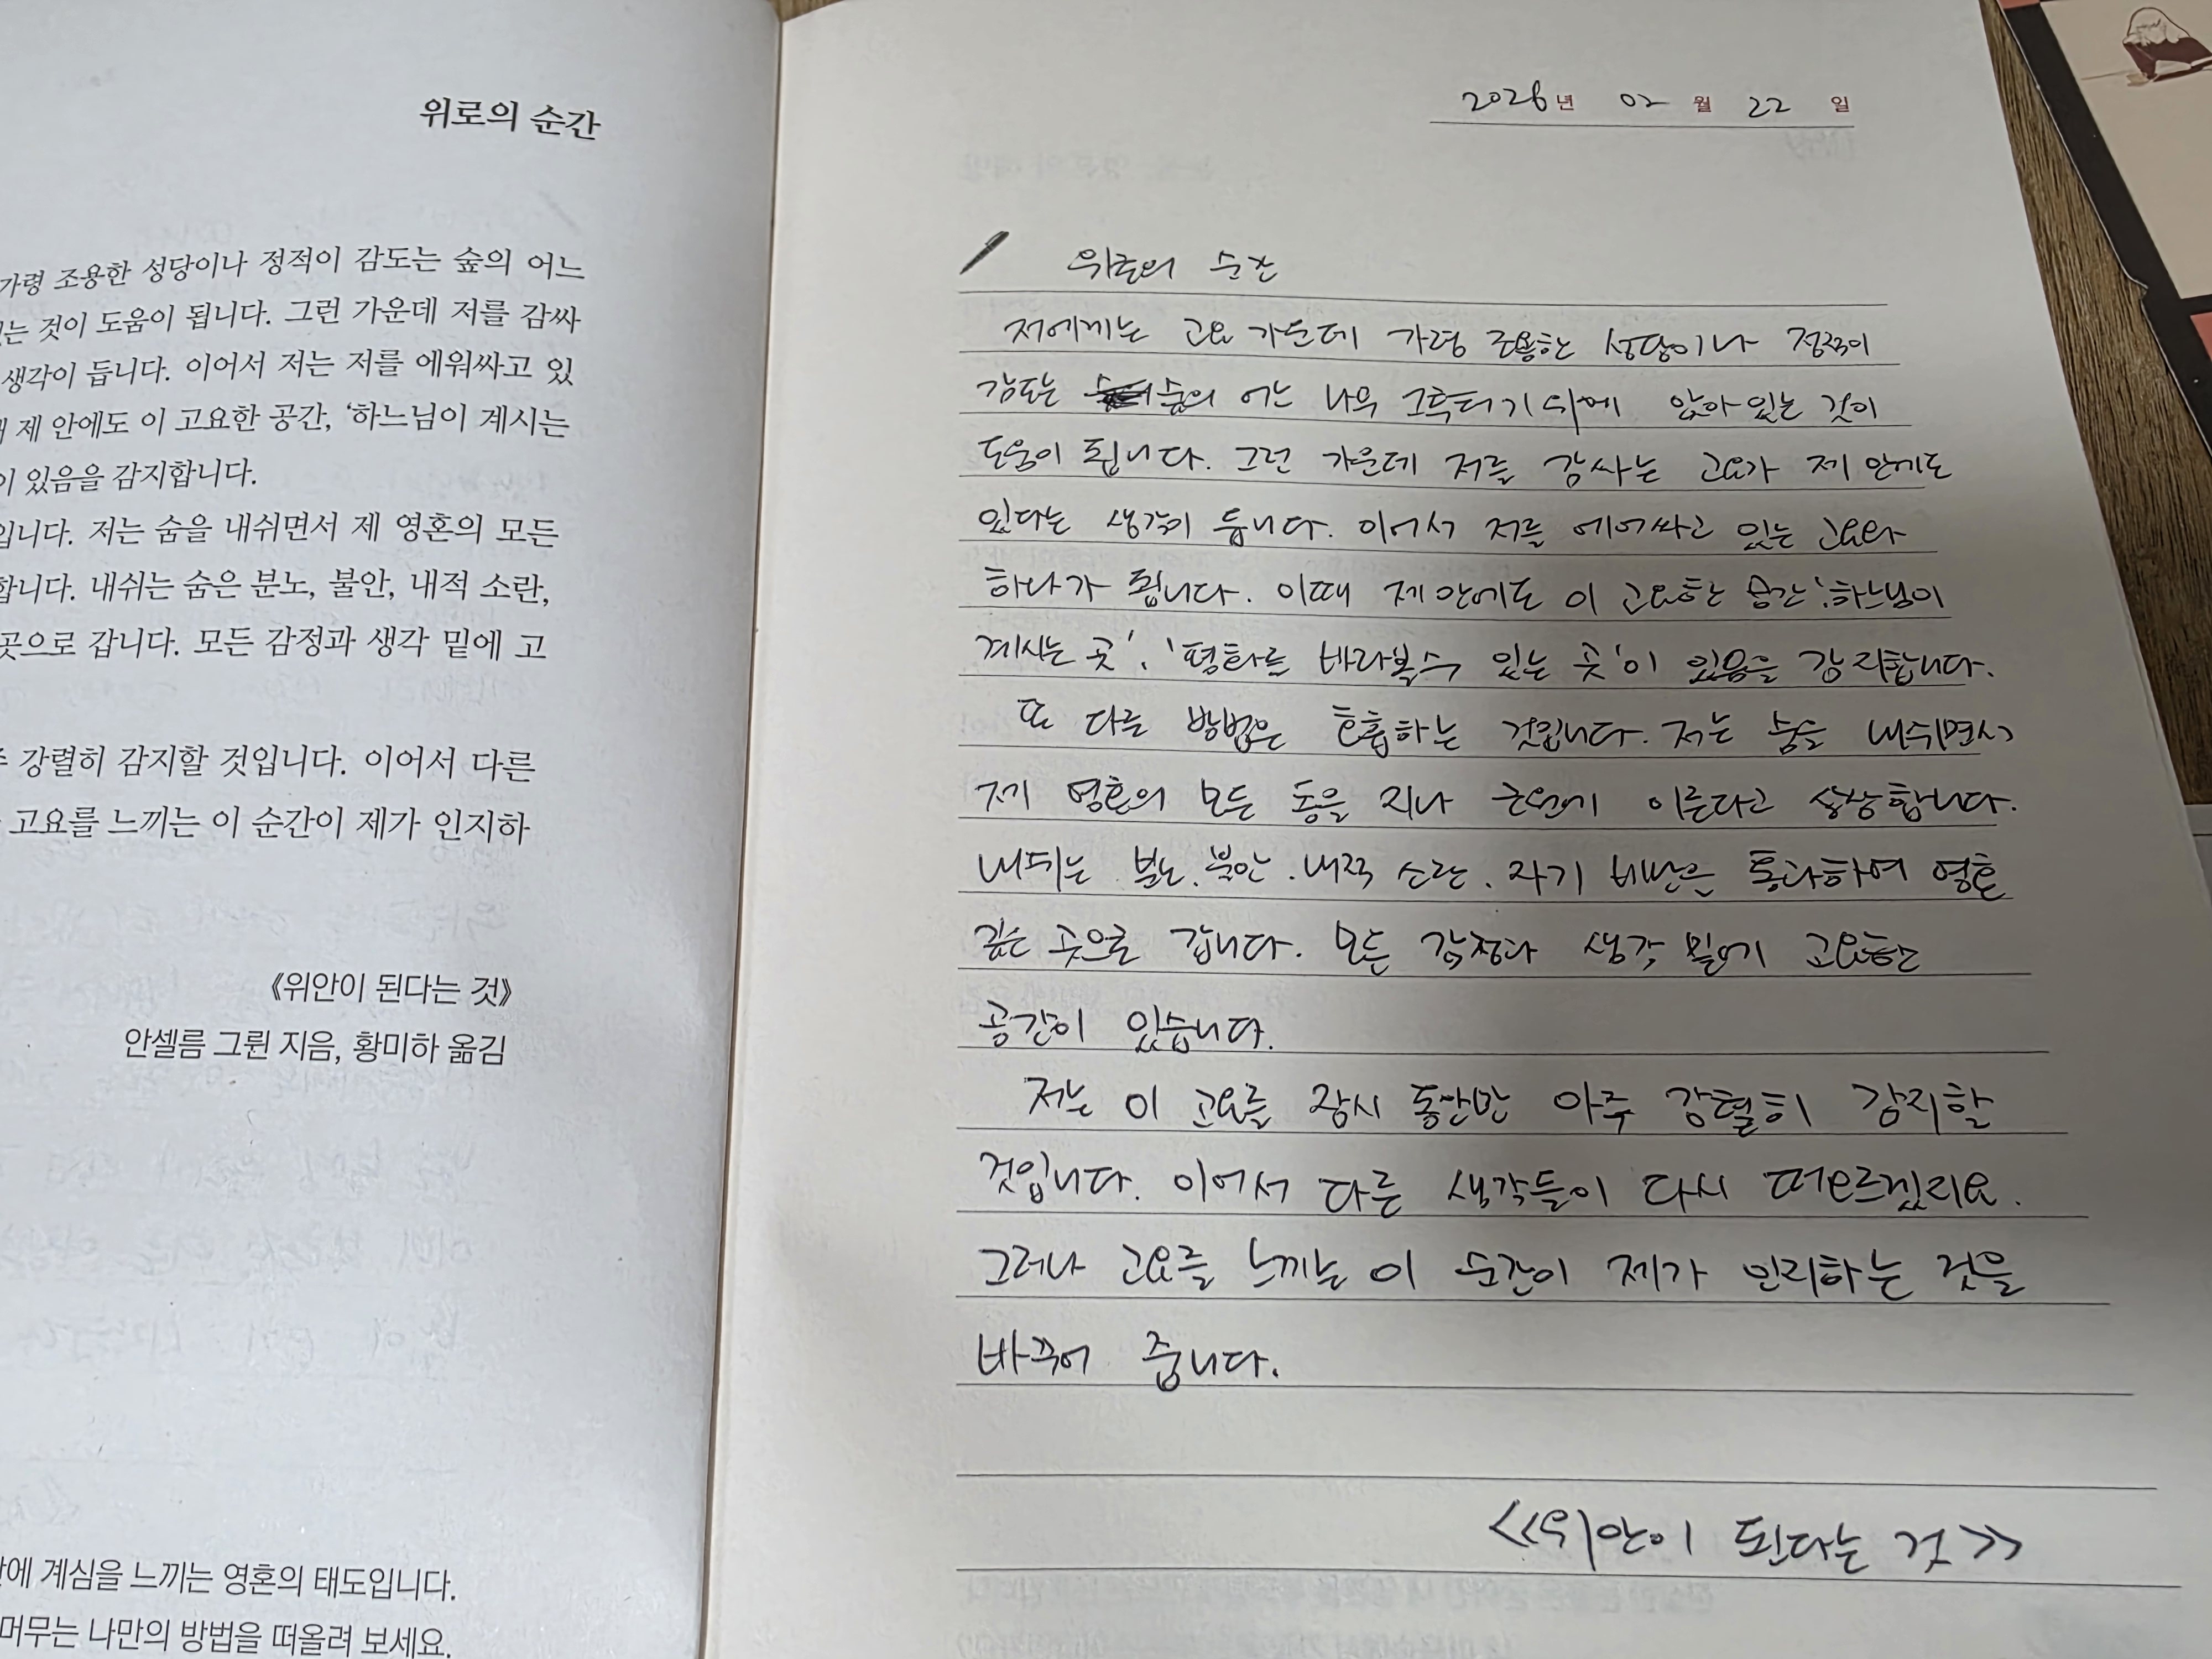 위로의 순간
가령 조용한 성당이나 정적이 감도는 숲의 어느
는 것이 도움이 됩니다. 그런 가운데 저를 감싸
생각이 듭니다. 이어서 저는 저를 에워싸고 있
제 안에도 이 고요한 공간, ‘하느님이 계시는
이 있음을 감지합니다.
입니다. 저는 숨을 내쉬면서 제 영혼의 모든
합니다. 내쉬는 숨은 분노, 불안, 내적 소란,
곳으로 갑니다. 모든 감정과 생각 밑에 고
강렬히 감지할 것입니다. 이어서 다른
고요를 느끼는 이 순간이 제가 인지하
《위안이 된다는 것》
안셀름 그륀 지음, 황미하 옮김
에 계심을 느끼는 영혼의 태도입니다.
머무는 나만의 방법을 떠올려 보세요.
2026년 02월 22일
위로의 순간
저에게는 고요 가운데 가령 조용한 성당이나 정적이
감도는 숲의 어느 나무 그루터기 위에 앉아 있는 것이
도움이 됩니다. 그런 가운데 저를 감싸는 고요가 제 안에도
있다는 생각이 듭니다. 이어서 저를 에어싸고 있는 고요와
하나가 됩니다. 이때 제 안에도 이 고요한 공간, '하느님이
계시는 곳', '평화를 바라볼 수 있는 곳'이 있음을 감지합니다.
또 다른 방법은 호흡하는 것입니다. 저는 숨을 내쉬면서
제 영혼의 모든 동을 지나 근원에 이른다고 상상합니다.
내쉬는 분노, 불안, 내적 소란, 자기 비난은 통과하여 영혼
깊은 곳으로 갑니다. 모든 감정과 생각 밑에 고요한
공간이 있습니다.
저는 이 고요를 잠시 동안만 아주 강렬히 감지할
것입니다. 이어서 다른 생각들이 다시 떠오르겠지요.
그러나 고요를 느끼는 이 순간이 제가 인지하는 것을
바꾸어 줍니다.
<<위안이 된다는 것>>